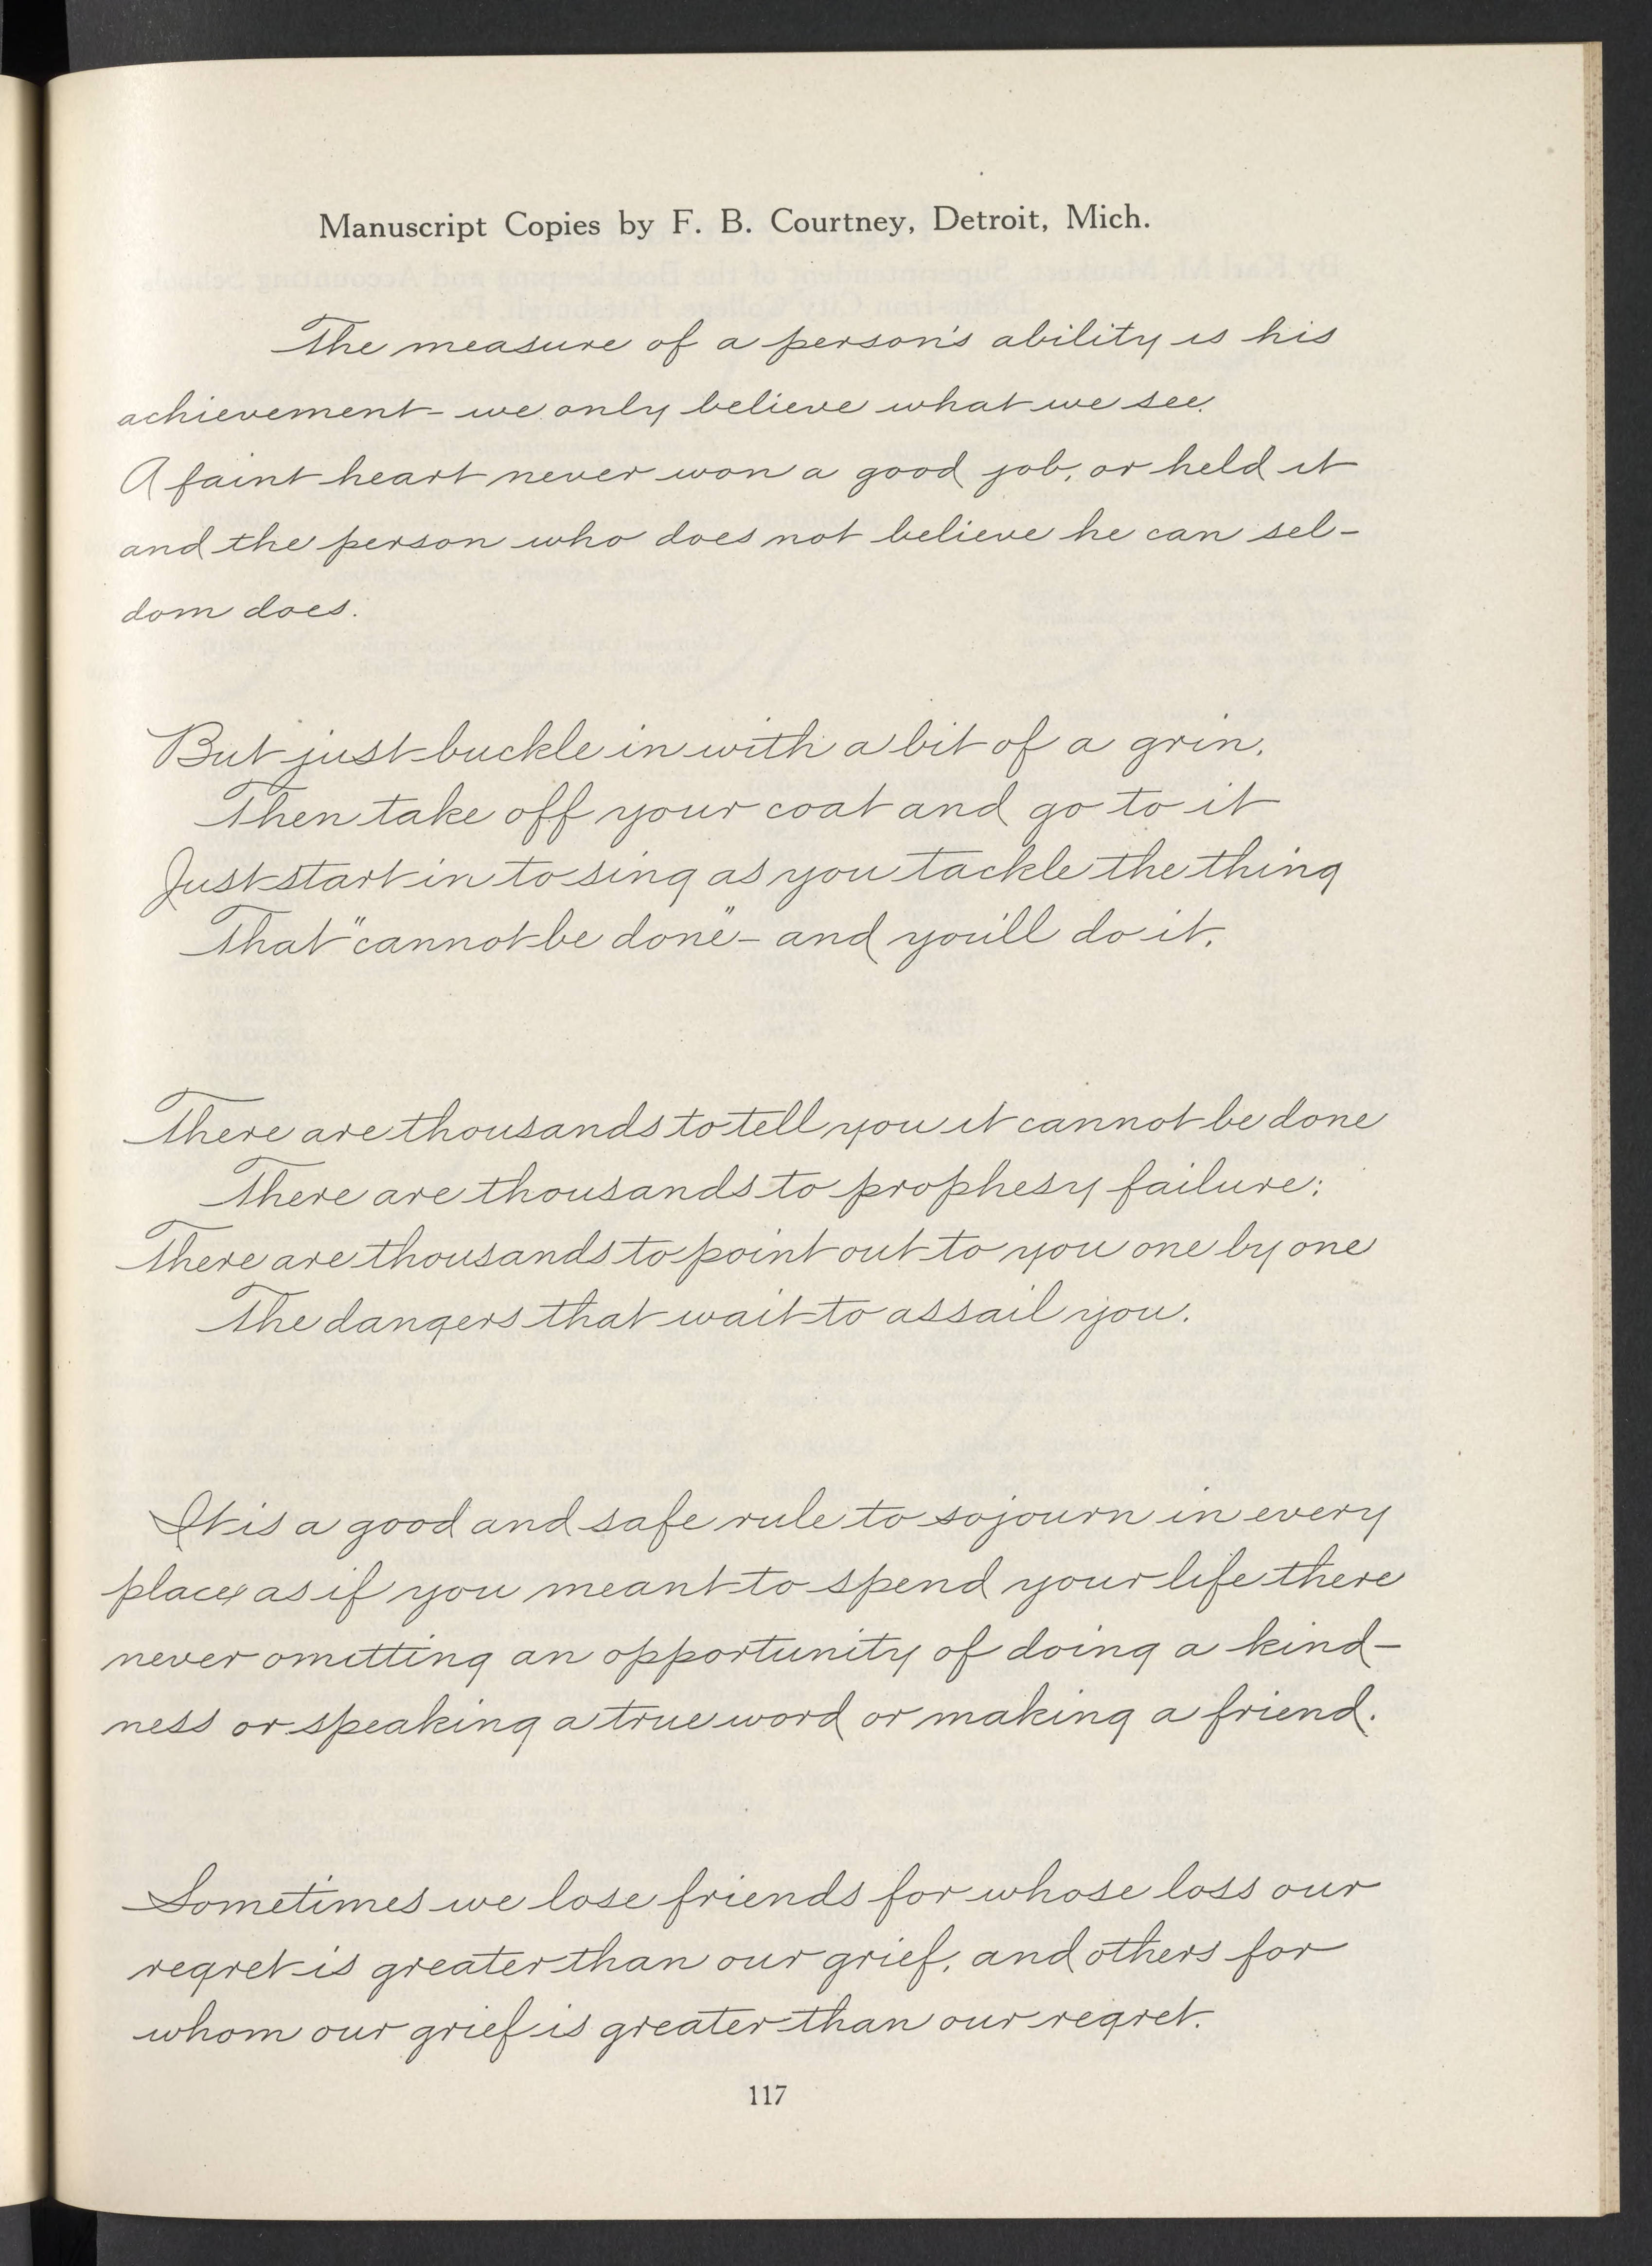 Manuscript Copies by F. B. Courtney, Detroit, Mich.
The measure of a person's ability is his
achievement - we only believe what we see.
A faint heart never won a good job, or held it
and the person who does not believe he can sel-
dom does.
But just buckle in with a bit of a grin,
Then take off your coat and go to it
Just start in to sing as you tackle the thing
That "cannot be done" - and you'll do it.
There are thousands to tell you it cannot be done
There are thousands to prophesy failure;
There are thousands to point out to you one by one
The dangers that wait to assail you.
It is a good and safe rule to sojourn in every
place as if you meant to spend your life there
never omitting an opportunity of doing a kind-
ness or speaking a true word or making a friend.
Sometimes we lose friends for whose loss our
regret is greater than our grief, and others for
whom our grief is greater than our regret.
117